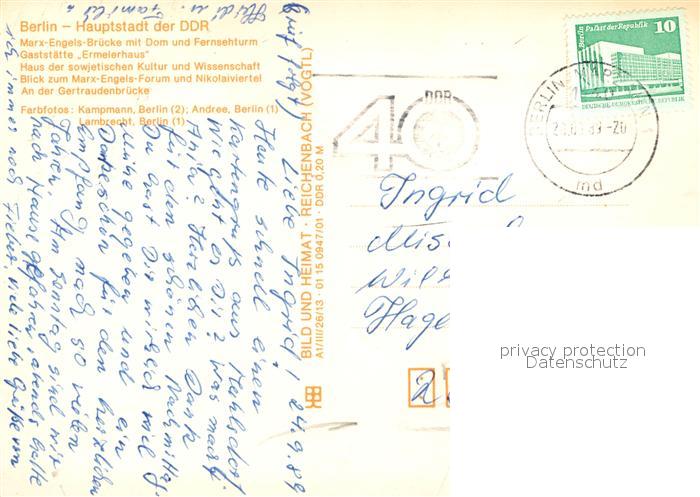 Berlin – Hauptstadt der DDR
Marx-Engels-Brücke mit Dom und Fernsehturm
Gaststätte „Ermelerhaus"
Haus der sowjetischen Kultur und Wissenschaft
Blick zum Marx-Engels-Forum und Nikolaiviertel
An der Gertraudenbrücke
Farbfotos: Kampmann, Berlin (2); Andree, Berlin (1)
Lambrecht, Berlin (1)
24.9.89
Liebe Ingrid!
Heute schnell einen
Kartengruß aus Mahlsdorf.
Wie geht es Dir? Was macht
Anita? Herzlichen Dank
für den schönen Nachmittag.
Du hast Dir wirklich viel
Mühe gegeben und ein
Dankeschön für den herzlichen
Empfang nach so vielen
Jahren. Am Sonntag sind wir
nach Hause gefahren, abends hatte
ich immer noch Fieber.
Familie
BILD UND HEIMAT · REICHENBACH (VOGTL)
A1/III/26/13 · 01 15 0947/01 · DDR 0,20 M
40
DDR
BERLIN
89-20
md
Berlin Palast der Republik
10
DEUTSCHE DEMOKRATISCHE REPUBLIK
Ingrid
Mis
Wil
Hage
2
privacy protection
Datenschutz